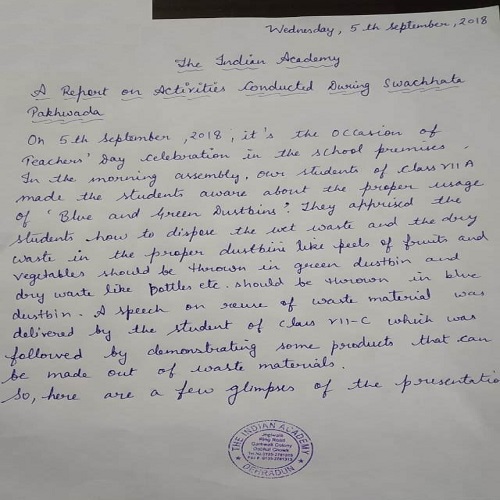 Wednesday, 5th September, 2018
The Indian Academy
A Report on Activities Conducted During Swachhata
Pakhwada
On 5th September, 2018, it's the occasion of
Teachers' Day celebration in the school premises.
In the morning assembly, our students of class VII A
made the students aware about the proper usage
of 'Blue and Green Dustbins'. They apprised the
students how to dispose the wet waste and the dry
waste in the proper dustbins like peels of fruits and
vegetables should be thrown in green dustbin and
dry waste like bottles etc. should be thrown in blue
dustbin. A speech on reuse of waste material was
delivered by the student of class VII-C which was
followed by demonstrating some products that can
be made out of waste materials.
So, here are a few glimpses of the presentatio
THE INDIAN ACADEMY
Ring Road
DEHRADUN